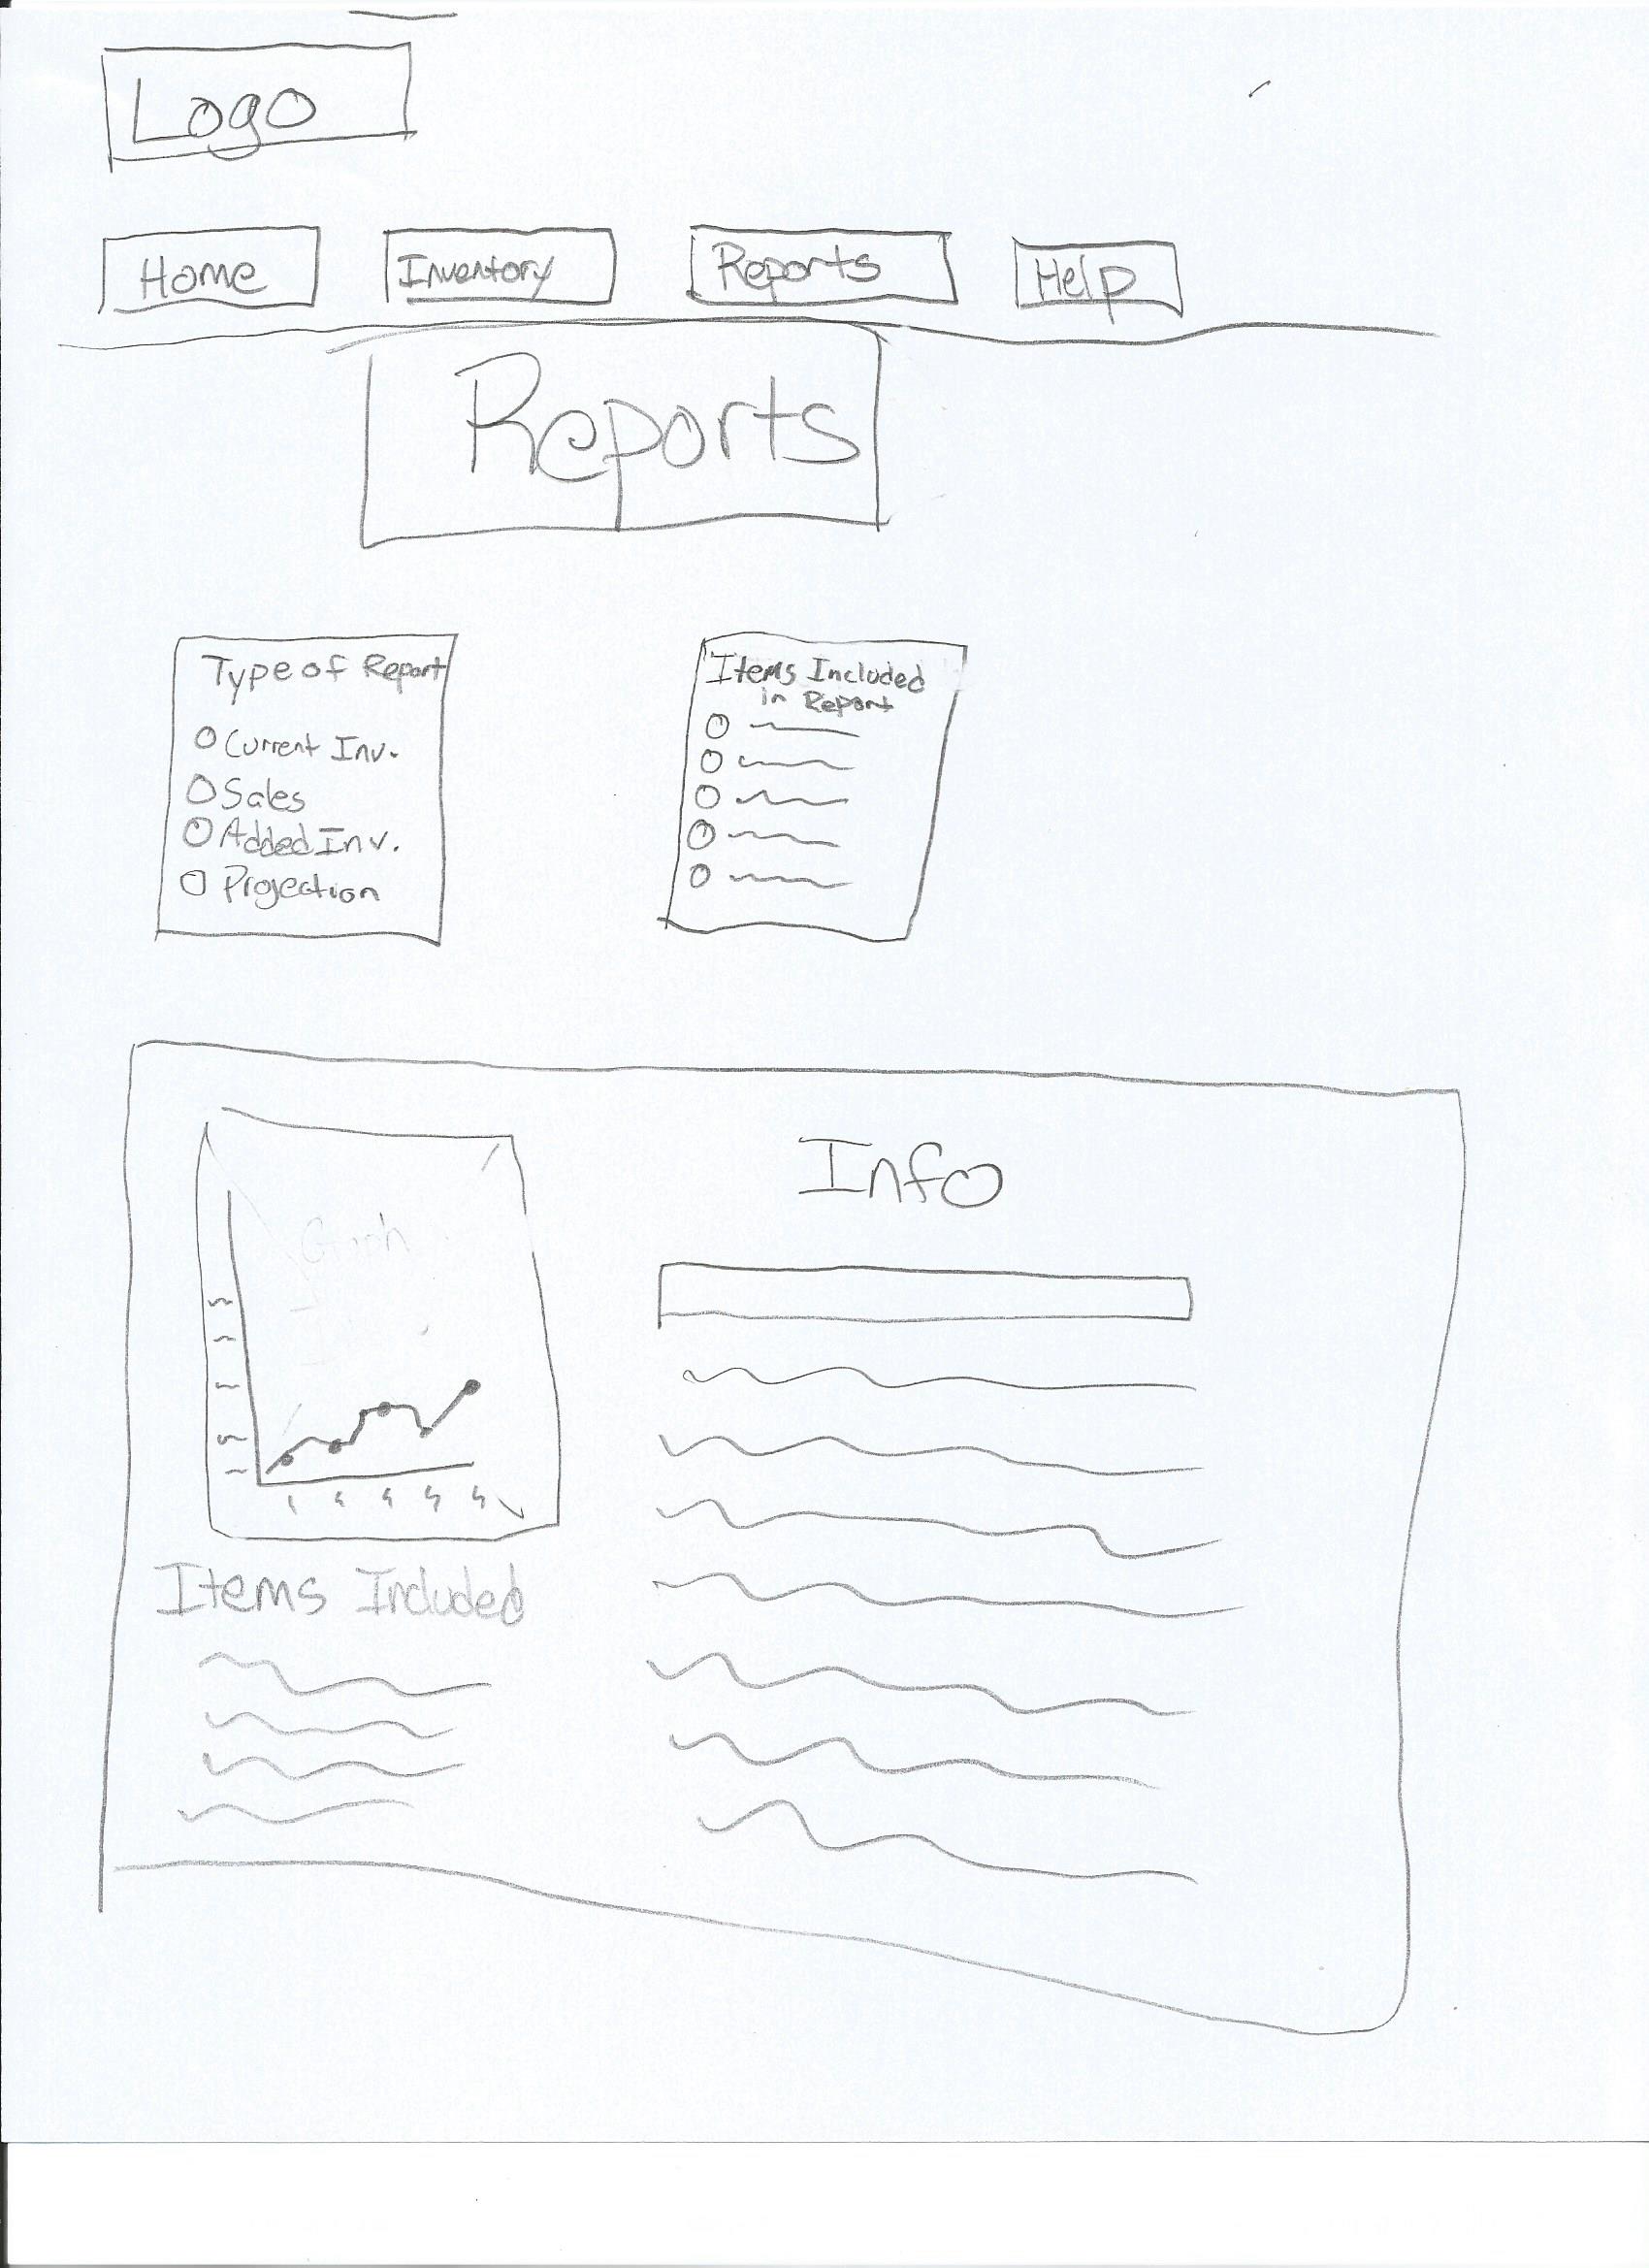 Logo
Home Inventory Reports Help
Reports
Type of Report
Current Inv.
Sales
Added Inv.
Projection
Items Included
in Report
Info
Items Included